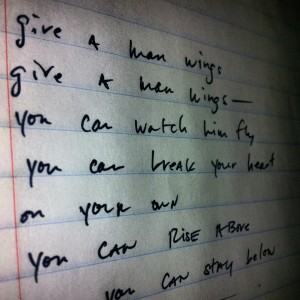 give A man wings
give A man wings—
you can watch him fly
you can break your heart
on your own
you CAN RISE ABOVE
you CAN STAY below